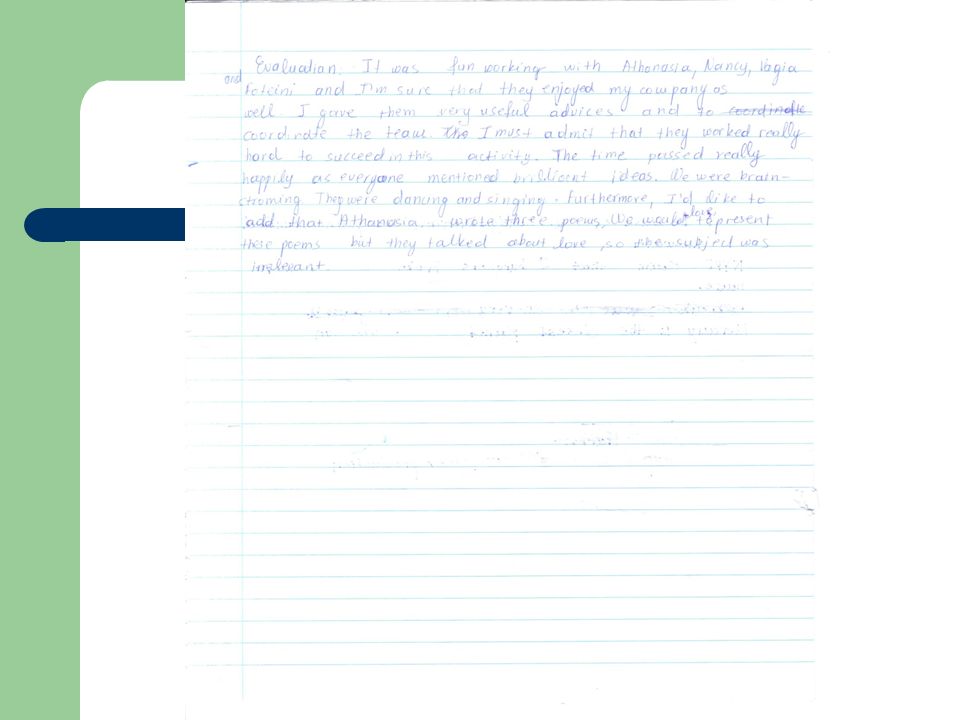 Evaluation: It was fun working with Athanasia, Nancy, Vagia
and Foteini and I'm sure that they enjoyed my company as
well. I gave them very useful advices and to coordinate
coordinate the team. I must admit that they worked really
hard to succeed in this activity. The time passed really
happily as everyone mentioned brillient ideas. We were brain-
stroming They were dancing and singing. Furthermore, I'd like to
add that Athanasia wrote three poems, We would love to present
these poems but they talked about love, so the subject was
irrelevant.